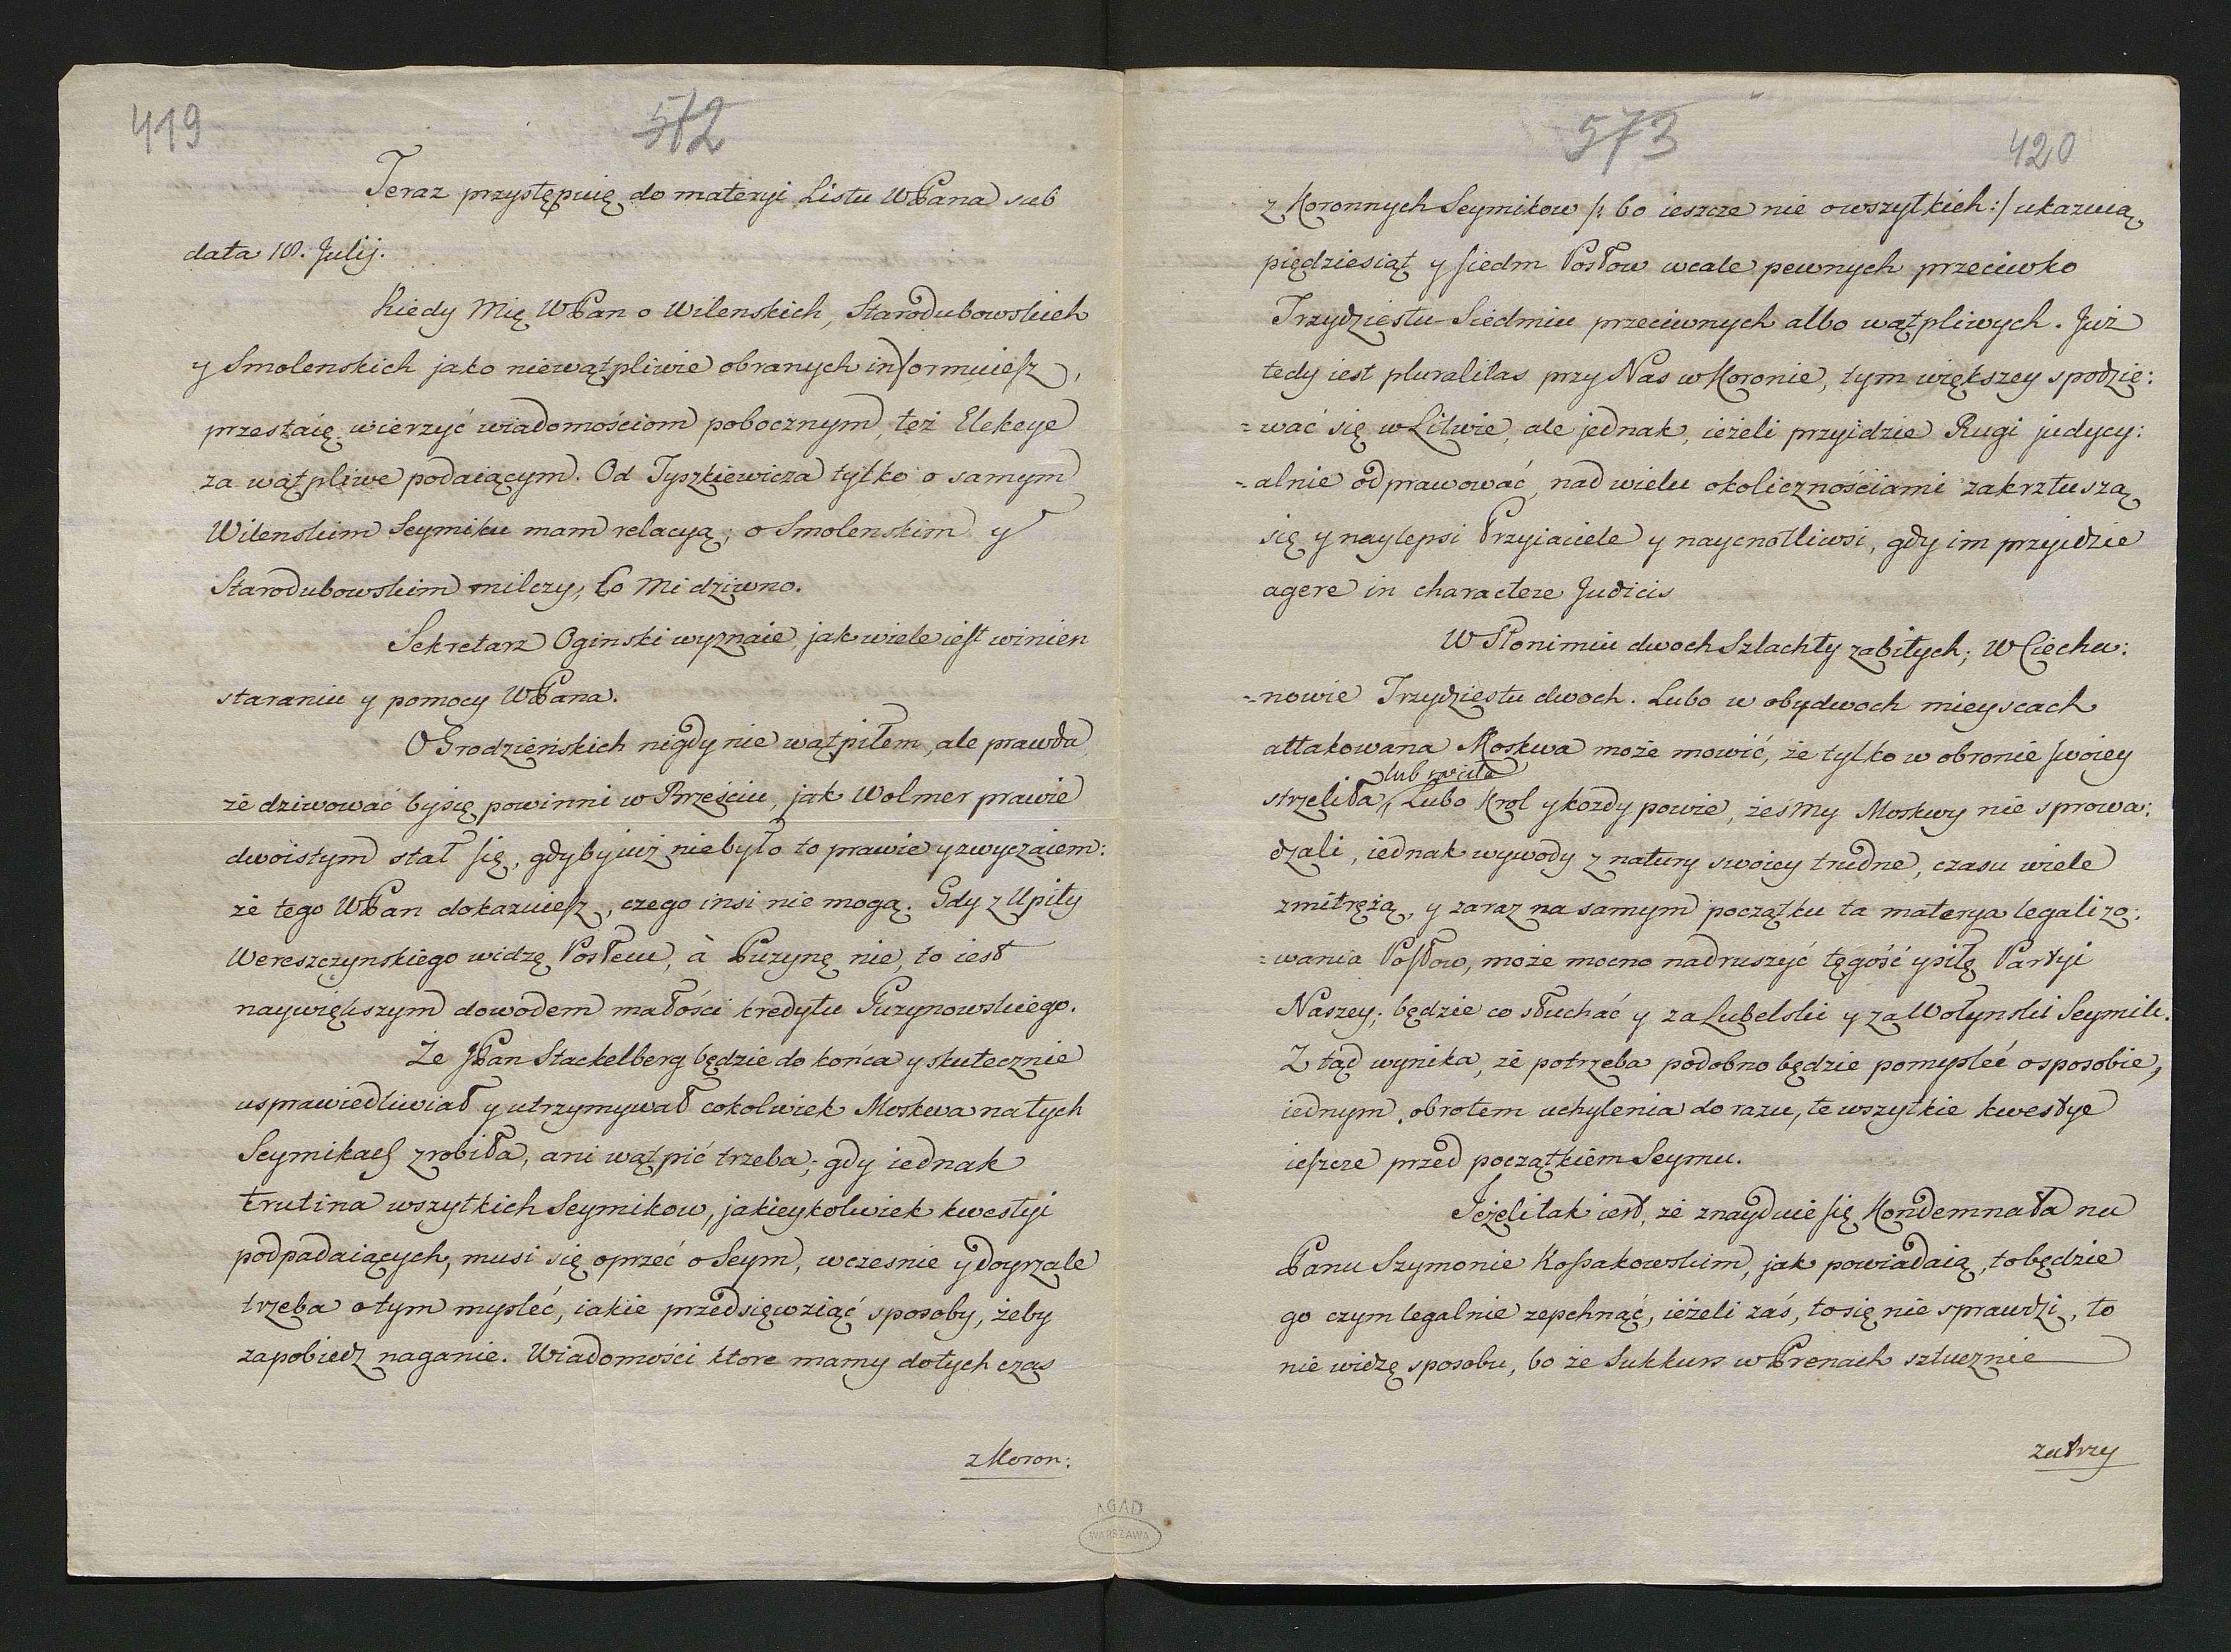 419
572
Teraz przystępuię do materyi Listu WPana sub
data 18. Julij.
Kiedy Mię WPan o Wilenskich, Starodubowskich
y Smolenskich jako niewątpliwie obranych informuiesz,
przestaię wierzyć wiadomościom pobocznym, też Elekcye
za wątpliwe podaiącym. Od Tyszkiewicza tylko o samym
Wilenskim Seymiku mam relacyą; o Smolenskim y
Starodubowskim milczy, to mi dziwno.
Sekretarz Oginski wyznaie, jak wiele iest winien
staraniu y pomocy WPana.
O Grodzieńskich nigdy nie wątpiłem, ale prawda
że dziwować by się powinni w Brześciu, jak Wolmer prawie
dwoistym stał się, gdyby iuż niebyło to prawie y zwyczaiem:
że tego WPan dokazuiesz, czego insi nie mogą. Gdy z Upity
Wereszczynskiego widzę Posłem, à Puzynę nie, to iest
naywiększym dowodem małości kredytu Puzynowskiego.
Że JPan Stackelberg będzie do końca y skutecznie
usprawiedliwiał y utrzymywał cokolwiek Moskwa na tych
Seymikach zrobiła, ani wątpić trzeba; gdy iednak
trutina wszytkich Seymikow, jakieykolwiek kwestyi
podpadaiących, musi się oprzeć o Seym, wczesnie y doyrzale
trzeba o tym mysleć, iakie przedsięwziąć sposoby, żeby
zapobiedz naganie. Wiadomości ktore mamy dotych czas
z Koron:
573
420
z Koronnych Seymikow /: bo ieszcze nie o wszytkich :/ ukazuią
pięćdziesiąt y siedm Posłow wcale pewnych przeciwko
Trzydziestu-Siedmiu przeciwnych albo wątpliwych. Już
tedy iest pluralitas przy Nas w Koronie, tym większey spodzie:
=wać się w Litwie, ale jednak, ieżeli przyidzie Rugi judycy:
=alnie odprawować, nad wielu okolicznościami zakrztuszą
się y naylepsi Przyiaciele y naycnotliwsi, gdy im przyidzie
agere in charactere Judicis
W Słonimiu dwoch Szlachty zabitych; W Ciecha:
=nowie Trzydziestu dwoch. Lubo w obydwoch mieyscach
attakowana Moskwa może mowić, że tylko w obronie swoiey
strzeliła, Lubo Krol y kozdy powie, żesmy Moskwy nie sprowa:
dzali, iednak wywody z natury swoiey trudne, czasu wiele
zmitrężą, y zaraz na samym początku ta materya legalizo:
=wania Posłow, może mocno nadruszyć tęgość y siłę Partyi
Naszey; będzie co słuchać y za Lubelski y za Wołynski Seymik.
Z tąd wynika, że potrzeba podobno będzie pomysleć o sposobie,
iednym obrotem uchylenia do razu, te wszytkie kwestye
ieszcze przed początkiem Seymu.
Jeżeli tak iest, że znayduie się Kondemnata na
Panu Szymonie Kossakowskim, jak powiadaią, to będzie
go czym legalnie zepchnąć, ieżeli zaś, to się nie sprawdzi, to
nie widzę sposobu, bo że Sukkurs w Prenach sztucznie
zatrzy
AGAD
WARSZAWA